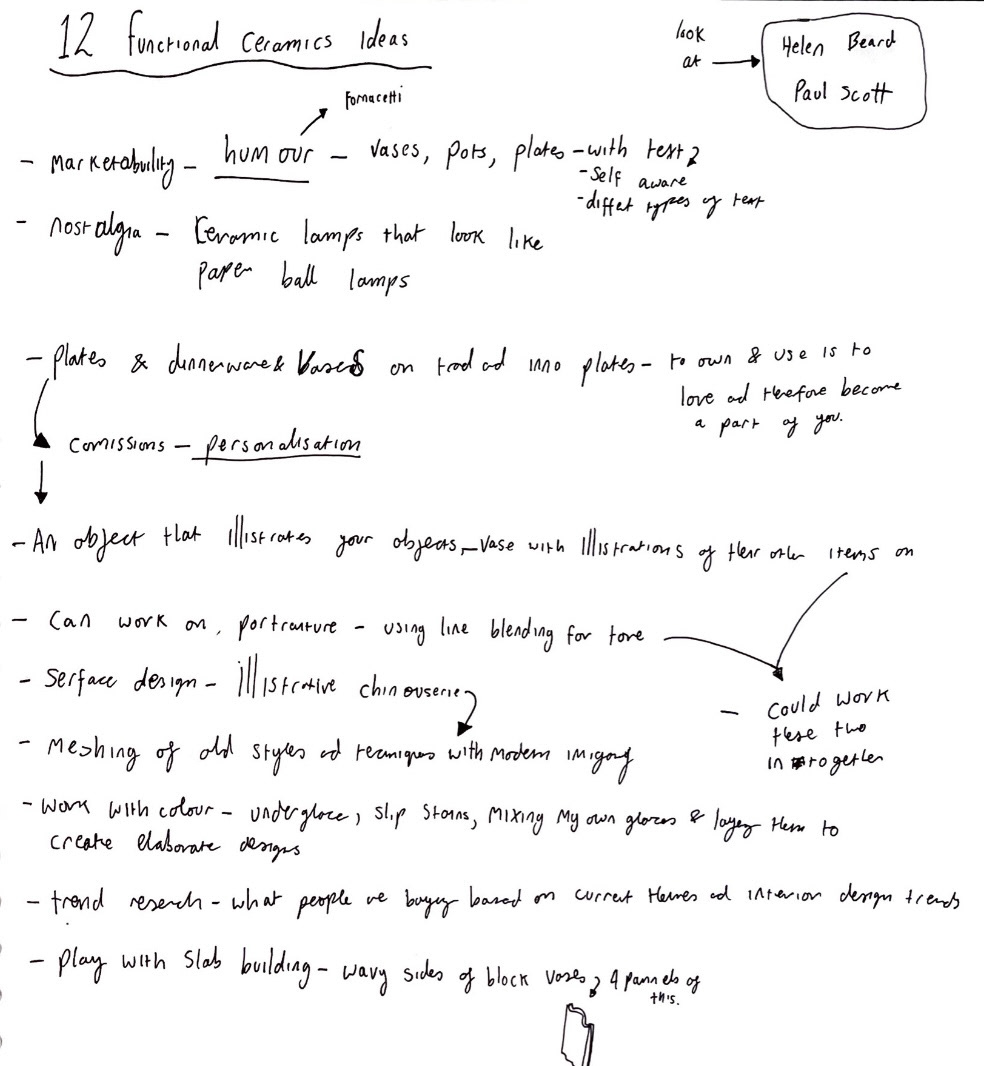 12 Functional Ceramics Ideas
look
at
Helen Beard
Paul Scott
Fornacetti
- Marketabuility - humour - vases, pots, plates - with text
- Self aware
- differt types of text
- nostalgia - Ceramic lamps that look like
paper ball lamps
- Plates & dinnerware & Vases on trad ad inno plates - to own & use is to
love ad therefore become
a part of you.
Comissions - personalisation
- An object that illistrates your objects - Vase with illistrations of their other items on
- Can work on, portraiture - using line blending for tone
- Serface design - illistrative chinouserie
- Could work
these two
in together
- Meshing of old styles ad tecniques with modern imigary
- Work with colour - underglaze, slip stains, mixing my own glazes & layey them to
create elaborate designs
- trend reserch - what people are buying based on current themes ad interior design trends
- Play with slab building - wavy sides of block vases 4 pannels of
this.